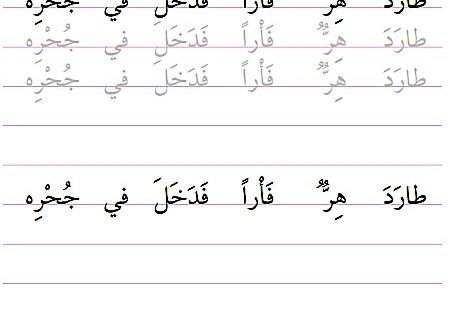 طارَدَ هِرٌّ فَأْراً فَدَخَلَ في جُحْرِه
طارَدَ هِرٌّ فَأْراً فَدَخَلَ في جُحْرِه
طارَدَ هِرٌّ فَأْراً فَدَخَلَ في جُحْرِه
طارَدَ هِرٌّ فَأْراً فَدَخَلَ في جُحْرِه